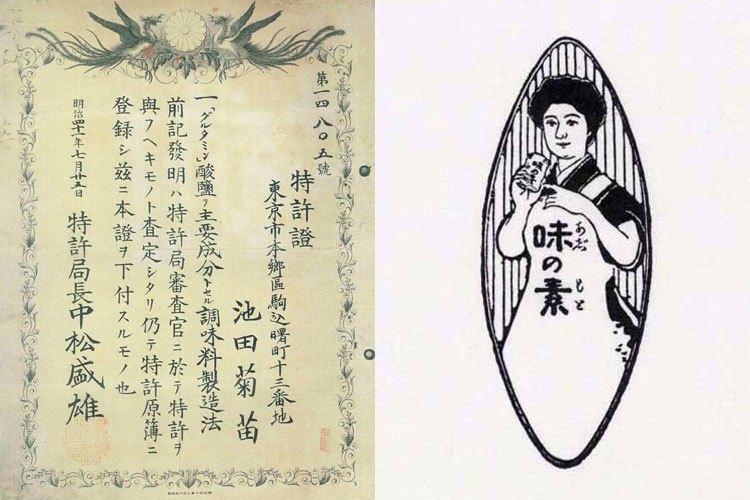 第一四八〇五號
特許證
東京市本郷區駒込曙町十三番地
池田菊苗
一「グルタミン」酸鹽ヲ主要成分トセル調味料製造法
前記發明ハ特許局審査官ニ於テ特許ヲ
與フヘキモノト査定シタリ仍テ特許原簿ニ
登録シ茲ニ本證ヲ下付スルモノ也
明治四十一年七月廿五日
特許局長中松盛雄
味の素
あぢ
もと